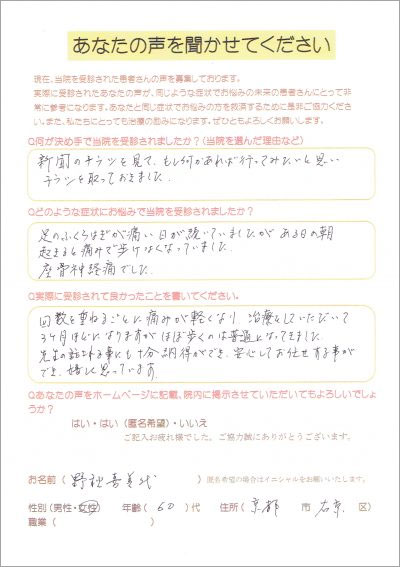 あなたの声を聞かせてください
現在、当院を受診された患者さんの声を募集しております。
実際に受診されたあなたの声が、同じような症状でお悩みの未来の患者さんにとって非
常に参考になります。あなたと同じ症状でお悩みの方を救済するために是非ご協力くださ
い。また、私たちにとっても治療の励みになります。ぜひともよろしくお願いします。
Q何が決め手で当院を受診されましたか?(当院を選んだ理由など)
新聞のチラシを見て、もし何かあれば行ってみたいと思い
チラシを取っておきました。
Qどのような症状にお悩みで当院を受診されましたか?
足のふくらはぎが痛い日が続いていましたがある日の朝
起きると痛みで歩けなくなっていました。
座骨神経痛でした。
Q実際に受診されて良かったことを書いてください。
回数を重ねるごとに痛みが軽くなり 治療をしていただいて
3ヶ月ほどになりますがほぼ歩くのは普通になってきました。
先生の話される事にも十分納得ができ、安心してお任せする事が
でき、嬉しく思っています。
Qあなたの声をホームページに記載、院内に掲示させていただいてもよろしいでしょ
うか?
はい・はい(匿名希望)・いいえ
ご記入お疲れ様でした。ご協力誠にありがとうございます。
お名前( 野 喜美代 )(匿名希望の場合はイニシャルをお願いいたします。
性別(男性・女性) 年齢( 60 )代 住所( 京都 市 右京 区)
職業( )